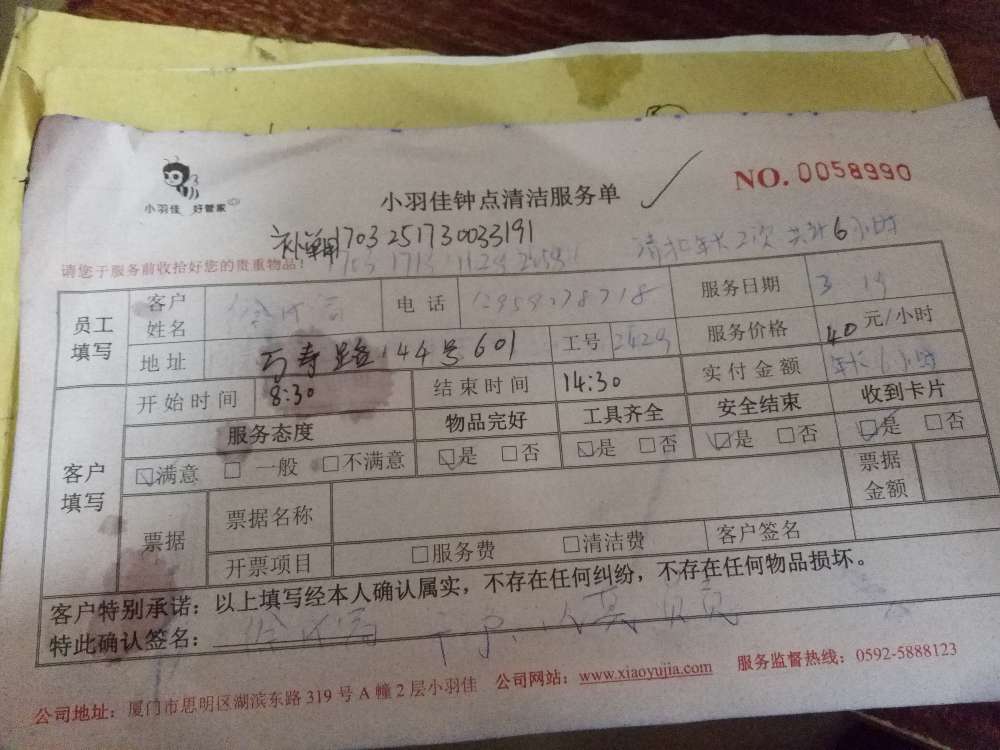 小羽佳 好管家
小羽佳钟点清洁服务单
NO. 0058990
补单用1703251730033191
2次 共计6小时
请您于服务前收拾好您的贵重物品!
员工填写
客户姓名
电话
服务日期 3 19
地址 万寿路144号601
工号 2429
服务价格 40元/小时
客户填写
开始时间 8:30
结束时间 14:30
实付金额 年长6小时
服务态度 物品完好 工具齐全 安全结束 收到卡片
☑满意 □一般 □不满意 ☑是 □否 ☑是 □否 ☑是 □否 ☑是 □否
票据
票据名称
票据金额
开票项目 □服务费 □清洁费
客户签名
客户特别承诺:以上填写经本人确认属实,不存在任何纠纷,不存在任何物品损坏。
特此确认签名:
公司地址:厦门市思明区湖滨东路319号A幢2层小羽佳 公司网站:www.xiaoyujia.com 服务监督热线:0592-5888123